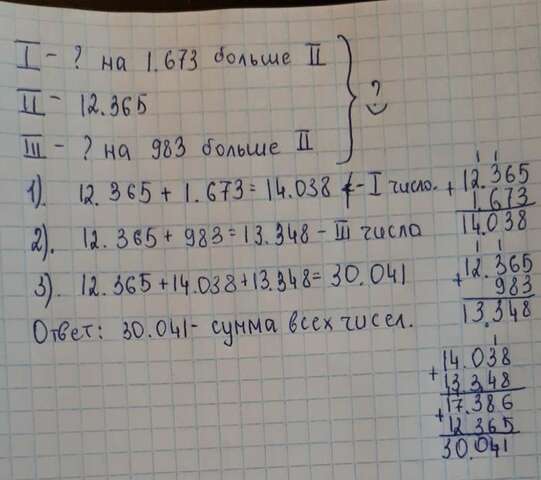 I - ? на 1.673 больше II
II - 12.365
?
III - ? на 983 больше II
1). 12.365 + 1.673 = 14.038 - I число.
2). 12.365 + 983 = 13.348 - III числа
3). 12.365 + 14.038 + 13.348 = 30.041
Ответ: 30.041 - сумма всех чисел.
1 1
12.365
+ 1.673
14.038
1 1
12.365
+ 983
13.348
1
14.038
+ 13.348
17.386
+ 12.365
30.041